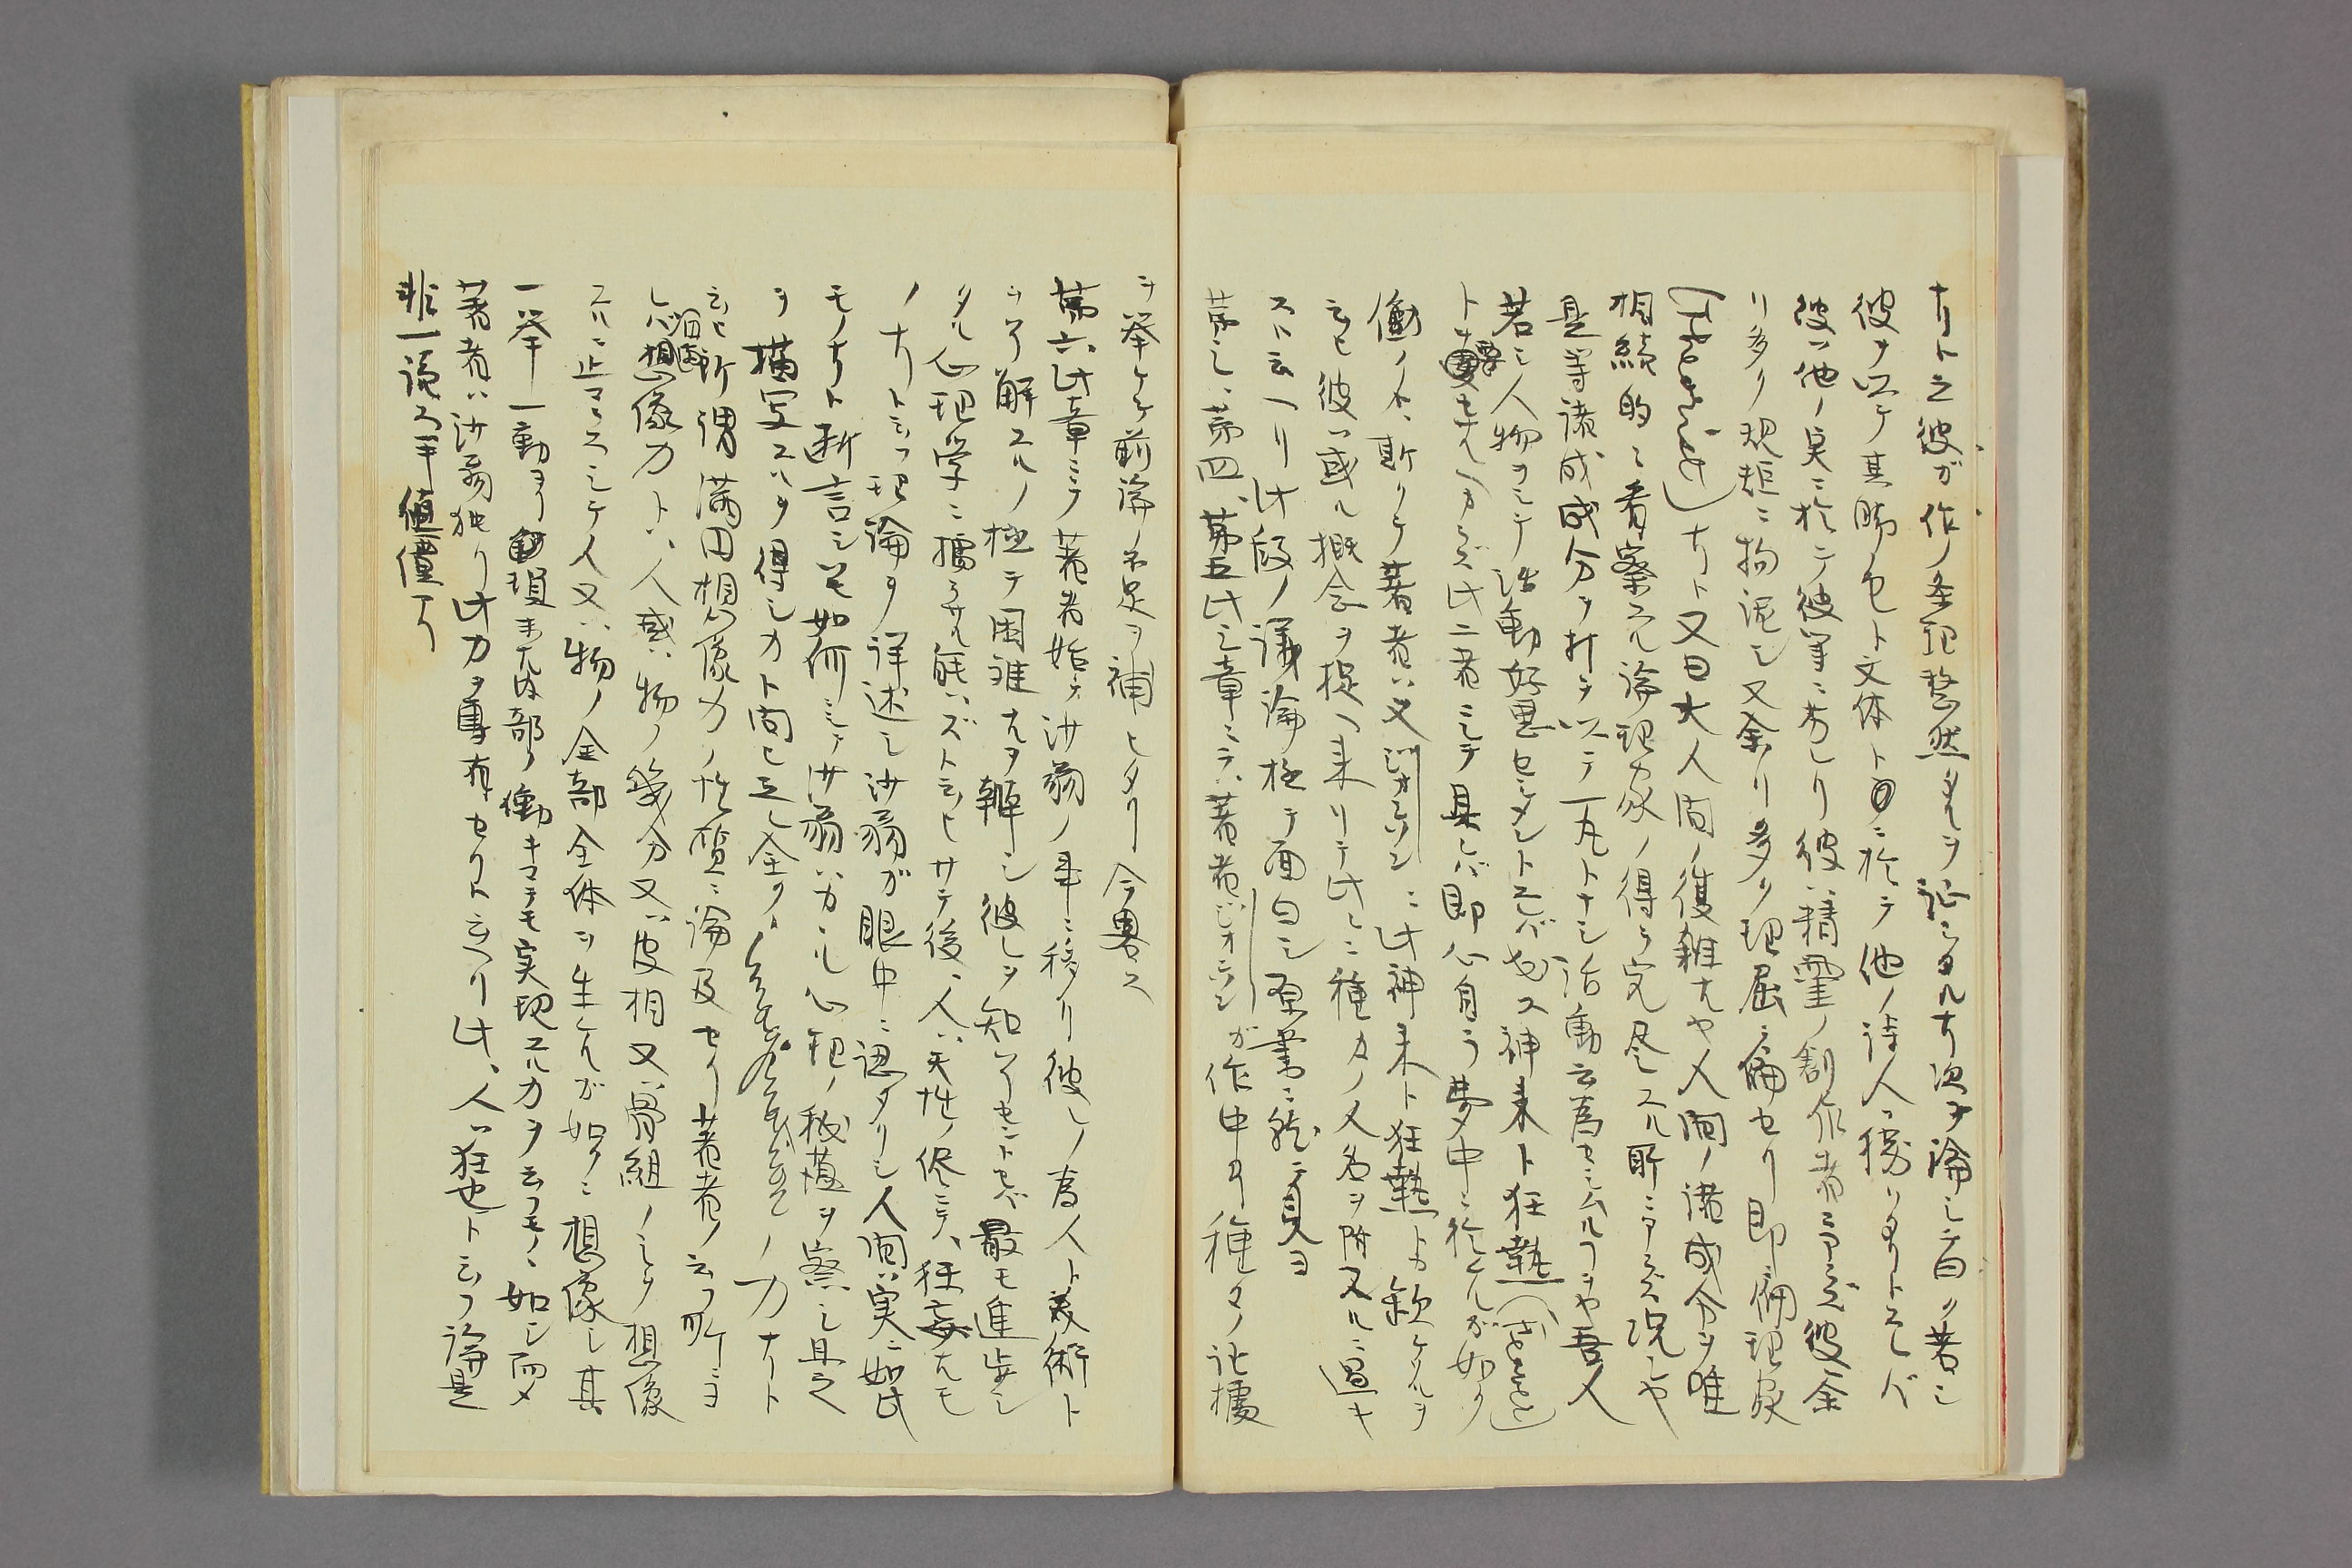 ナリト云彼ガ作ノ条理整然タルヲ証シタル
彼ヲ以テ其脚色ト文体トニ於テ他ノ詩人ニ優リタリトスレバ
彼ハ他ノ実ニ於テ彼等ニ劣レリ彼ハ精霊ノ創作者ニアラズ彼余
リ多ク規矩ニ拘泥シ又余リ多ク理屈ニ偏セリ即偏理家
ナリト又曰大人間ノ複雑ナルヤ人間ノ諸成分ヲ唯
相続的ニ看察スル論理家ノ得テ究尽スル所ニアラズ況ヤ
是等諸成分ヲ打ヲ以テ一丸トナシ活動云為セシムルヿヲヤ吾人
若シ人物ヲシテ活動好悪セシメントセバ必ス神来ト狂熱
トヲ要セルヿカラズ此二者ニシテ具レバ即心自ラ夢中ニ於ルガ如ク
働クノミ斯クテ著者ハ又ジオンソンニ此神来ト狂熱トカ欠ケルヲ
云ヒ彼ハ或ル概念ヲ捉ヘ来リテ此レニ種々ノ人名ヲ附スルニ過キ
スト云ヘリ此段ノ議論極テ面白シ原書ニ就テ見ヨ
第三、第四、第五此三章ニテハ著者ハジオンソンガ作中ヨリ種々ノ証拠
ヲ挙ケテ前論ノ不足ヲ補ヒタリ今畧ス
第六此章ニテ著者始テ沙翁ノ事ニ移リ彼レノ為人ト美術ト
ヲ了解スルノ極テ困難ナルヲ辯シ彼レヲ知ラントセバ最モ進歩シ
タル心理学ニ拠ラサル能ハズト云ヒサテ後、人ハ天性ノ侭ニテハ狂妄ナルモ
ノナリト云フ理論ヲ詳述シ沙翁ガ眼中ニ認タリシ人間ハ実ニ如此
モノナリト断言シ如何ニシテ沙翁ハカヽル心理ノ秘蘊ヲ察シ且之
ヲ描写スルヲ得シカト問ヒ是レ全ク ノ力ナリト
云ヒ所謂満円想像力ノ性質ニ論及セリ著者ノ云フ所ニヨ
レバ想像力トハ人或ハ物ノ幾分又ハ皮相又ハ骨組ノミヲ想像
スルニ止マラスシテ人又ハ物ノ全部全体ヲ生ケルガ如クニ想像シ其
一挙一動ヨリ 内部ノ働キマテモ実現スル力ヲ云フモノヽ如シ而メ
著者ハ沙翁独リ此力ヲ専有セリト云ヘリ此、人ハ狂也ト云フ論是
非一読ス可キ価値アリ